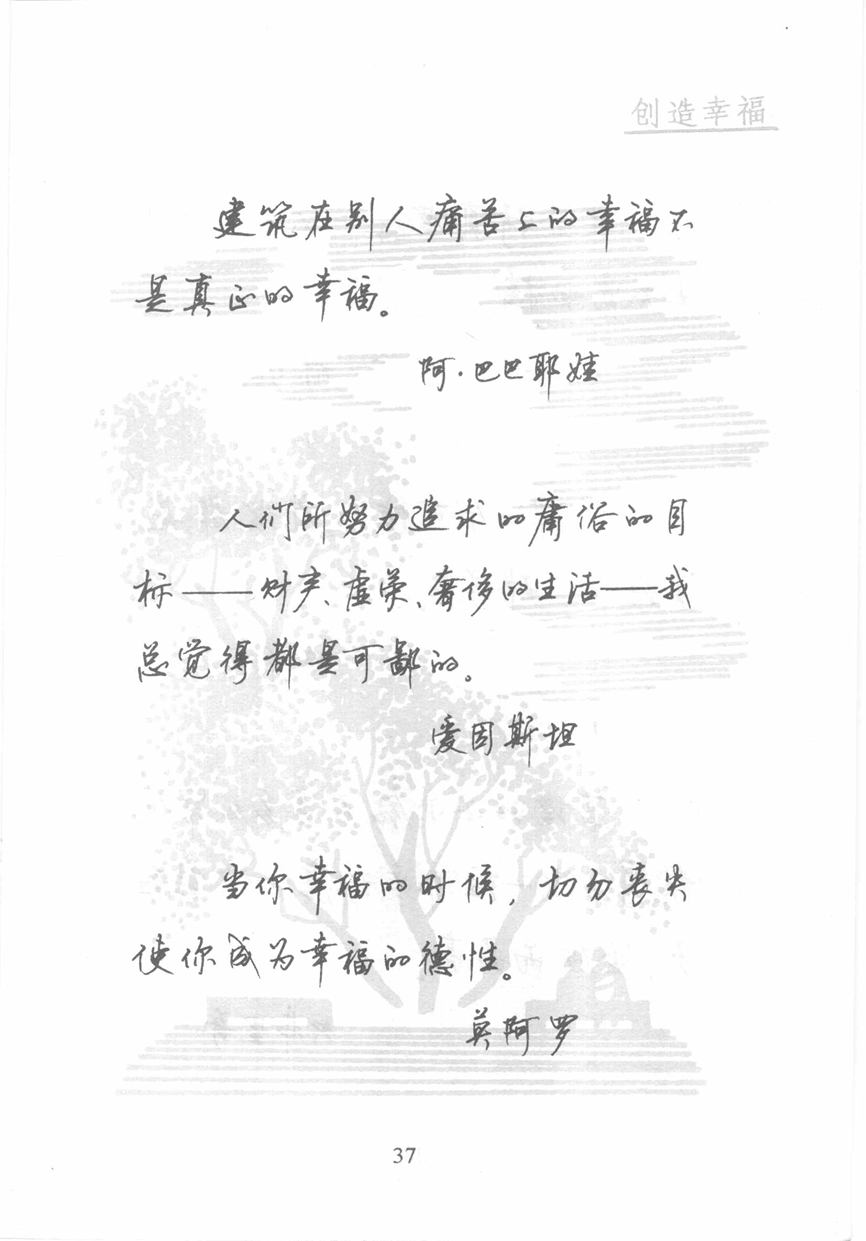 创造幸福
建筑在别人痛苦上的幸福不
是真正的幸福。
阿·巴巴耶娃
人们所努力追求的庸俗的目
标——财产、虚荣、奢侈的生活——我
总觉得都是可鄙的。
爱因斯坦
当你幸福的时候，切勿丧失
使你成为幸福的德性。
莫阿罗
37